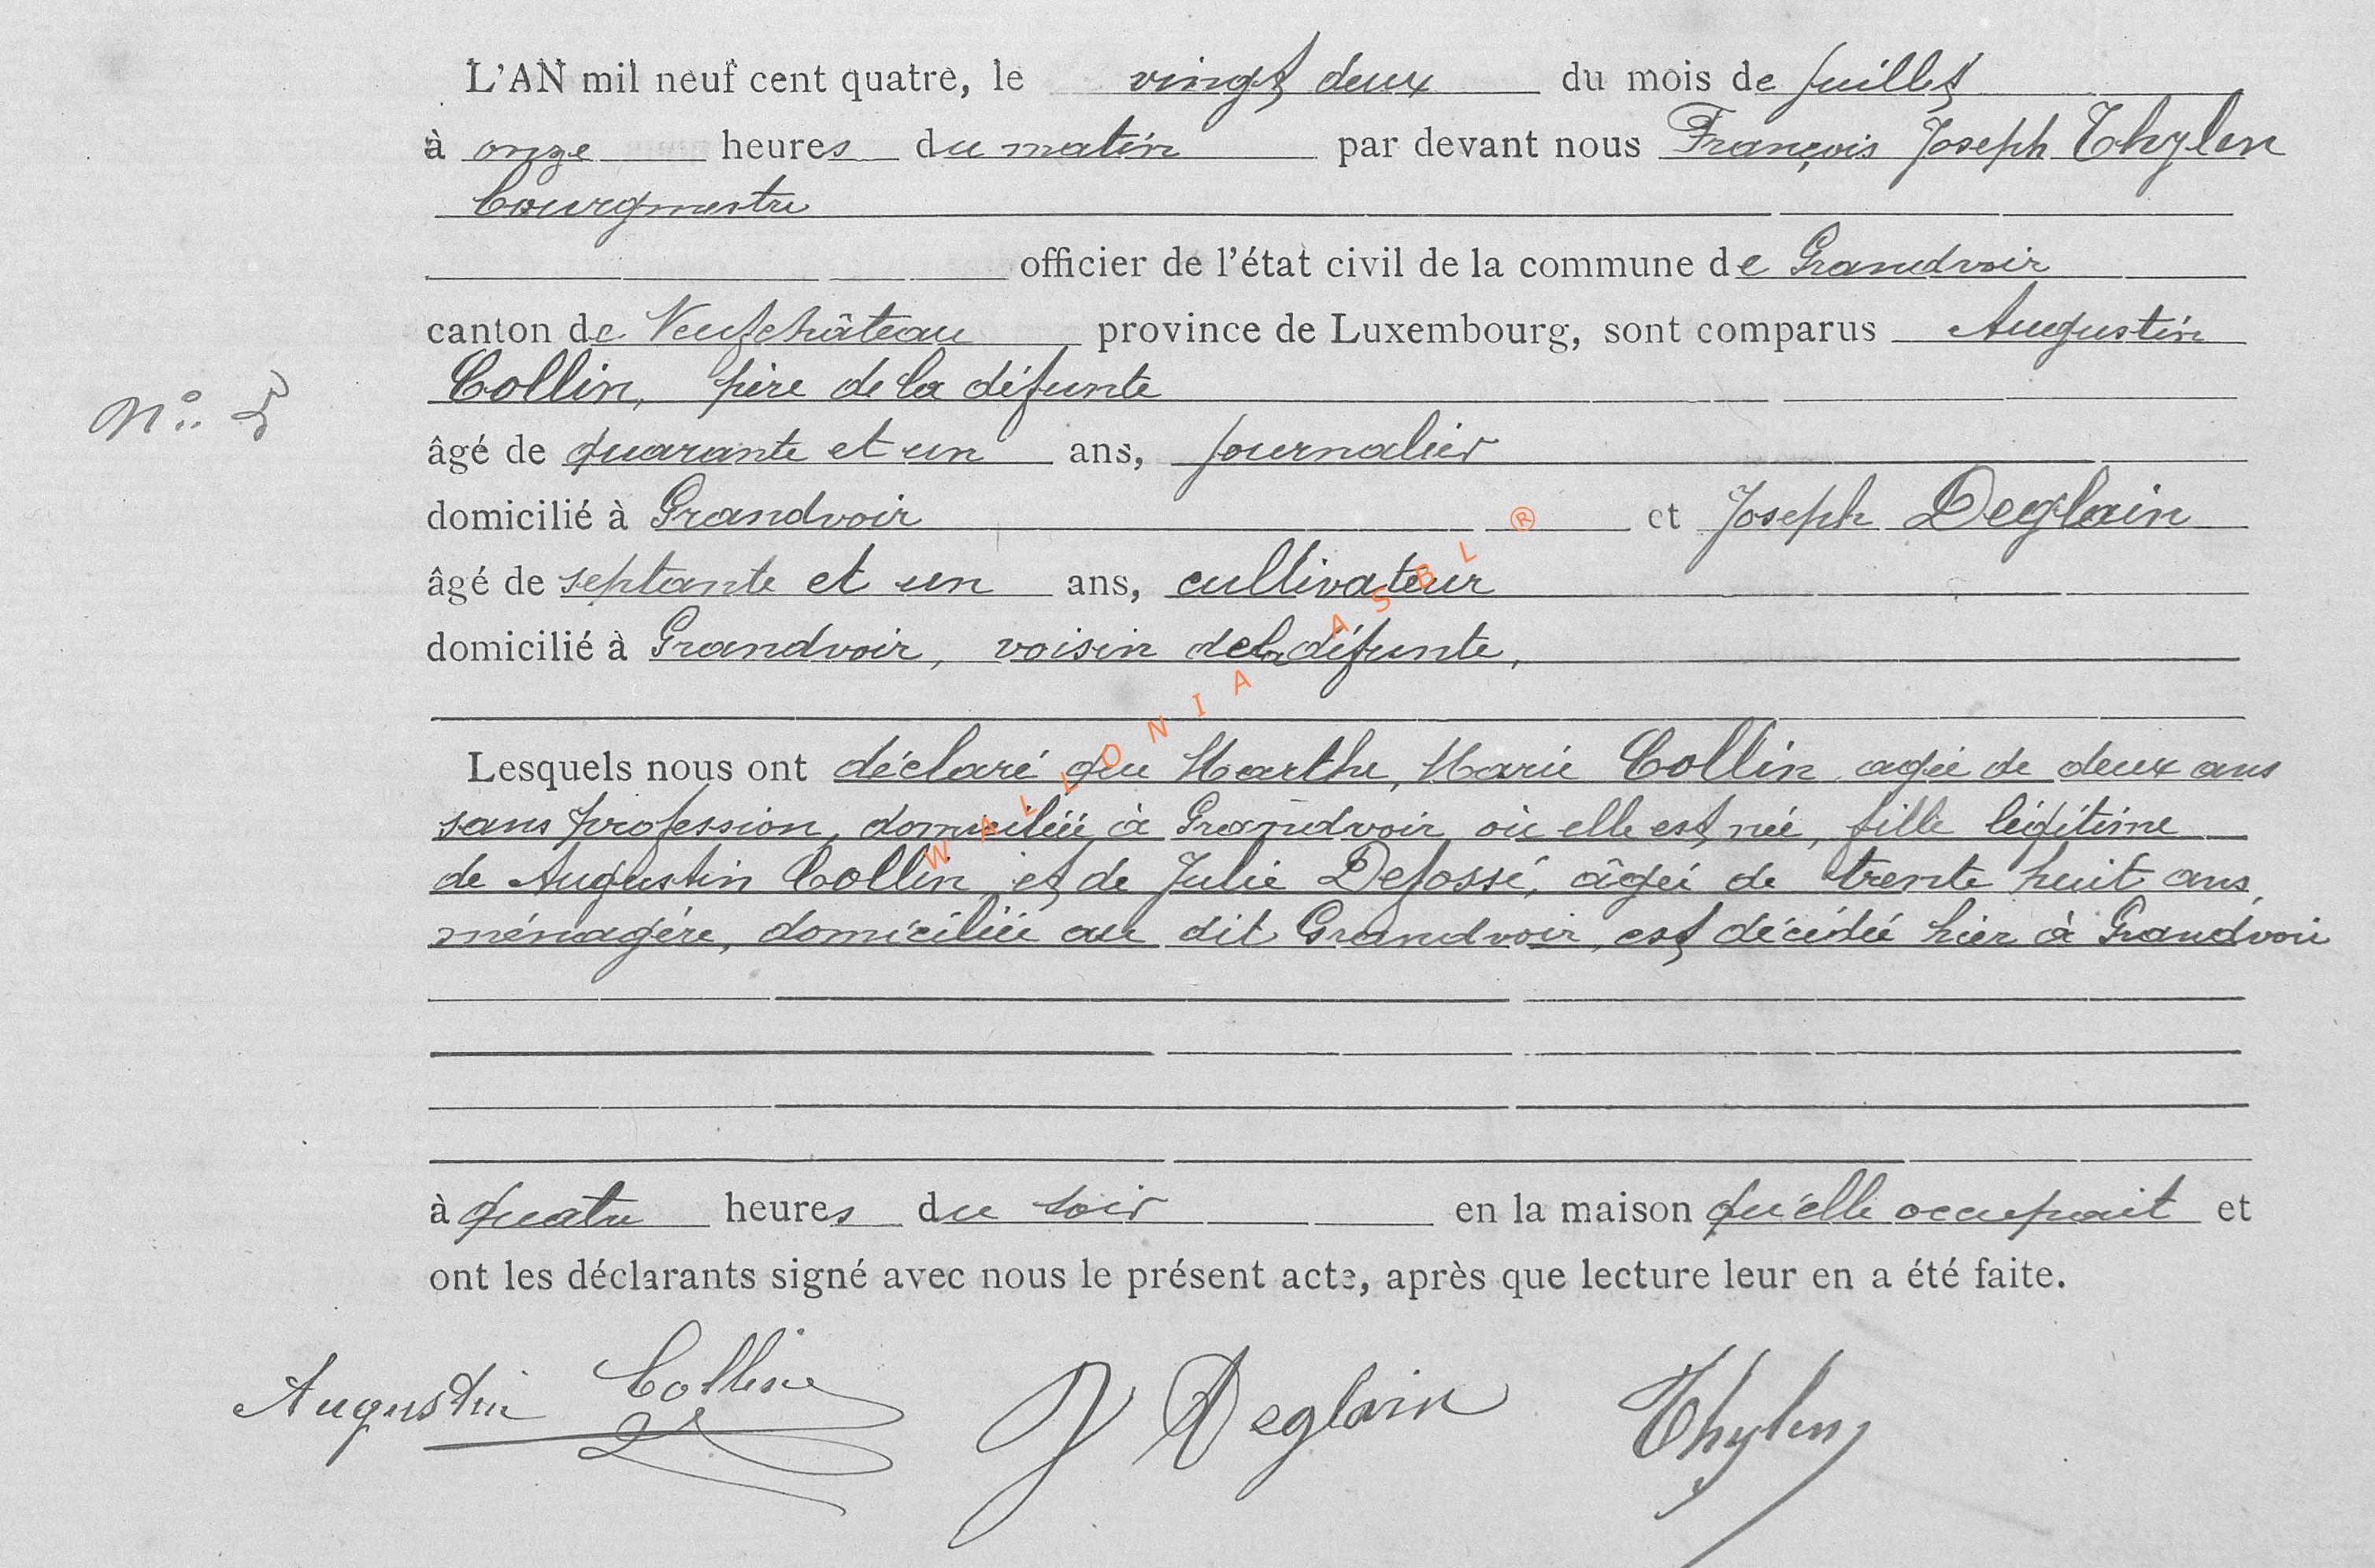 L'AN mil neuf cent quatre, le vingt deux du mois de Juillet
à onze heures du matin par devant nous François Joseph Thylen
bourgmestre
officier de l'état civil de la commune de Grandvoir
canton de Neufchâteau province de Luxembourg, sont comparus Augustin
Collin, père de la défunte
N° 5
âgé de quarante et un ans, journalier
domicilié à Grandvoir et Joseph Deglain
âgé de septante et un ans, cultivateur
domicilié à Grandvoir, voisin de la défunte,
Lesquels nous ont déclaré que Marthe, Marie Collin agée de deux ans
sans profession, domiciliée à Grandvoir où elle est née, fille légitime
de Augustin Collin et de Julie Defossé, âgée de trente huit ans,
ménagère, domiciliée au dit Grandvoir, est décédée hier à Grandvoir
à quatre heures du soir en la maison qu'elle occupait et
ont les déclarants signé avec nous le présent acte, après que lecture leur en a été faite.
Augustin Collin J Deglain Thylen
WALLONIA ASBL ®